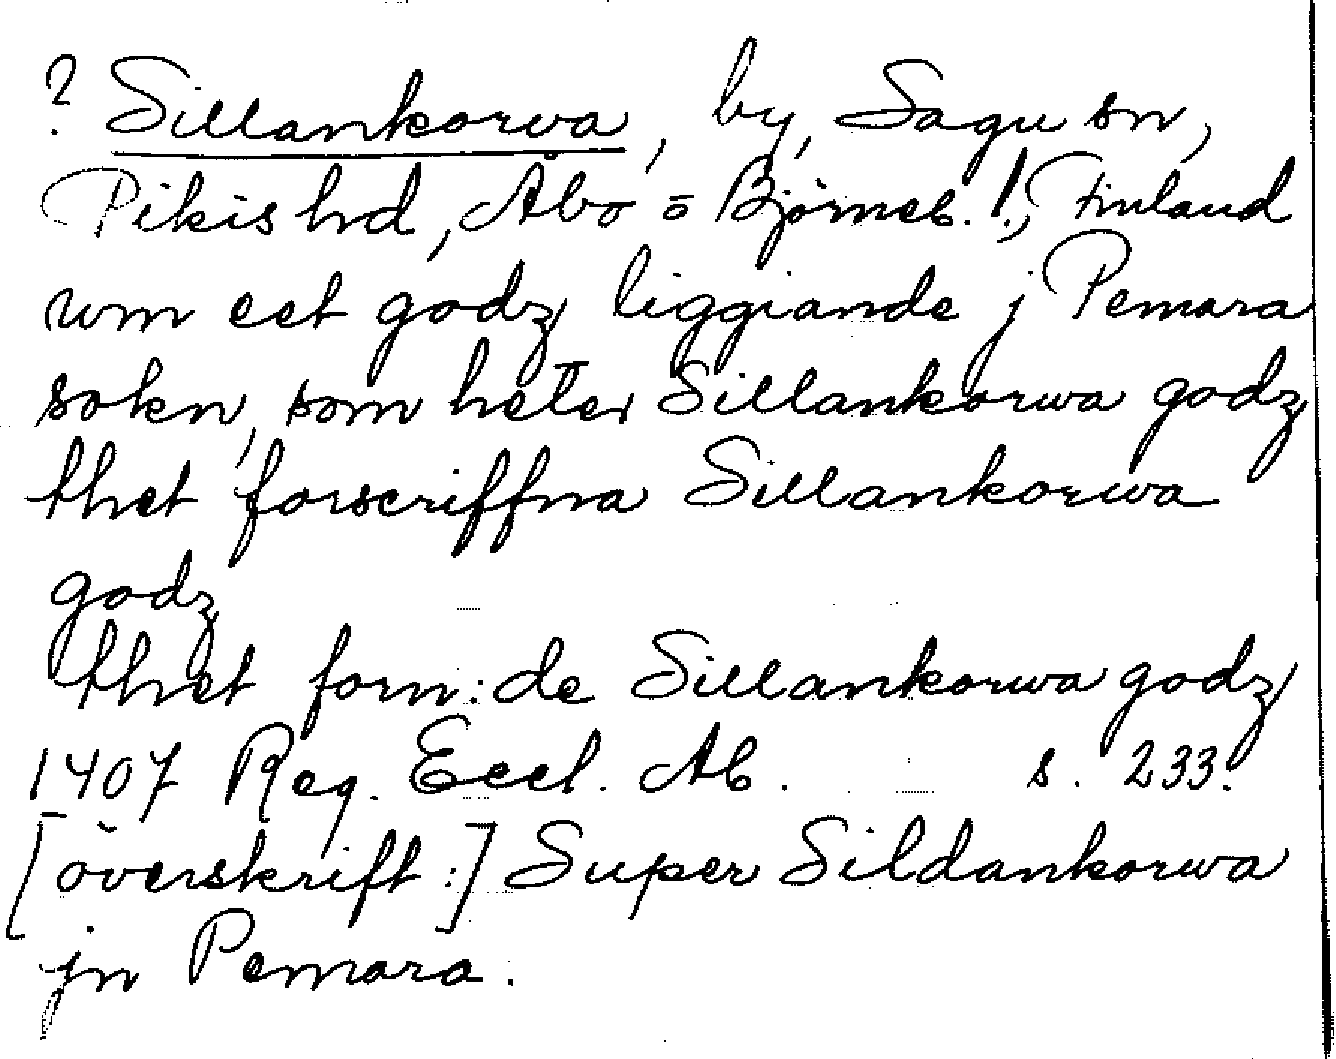 ? Sillankorwa, by, Sagu sn,
Pikis hd, Åbo = Björneb. l., Finland
um eet godz liggiande j Pemara
sokn, som heter Sillankorwa godz
thet forscriffna Sillankorwa
godz
thet forn:de Sillankorwa godz
1407 Reg. Eccl. Ab. s. 233.
[överskrift:] Super Sildankorwa
jn Pemara.